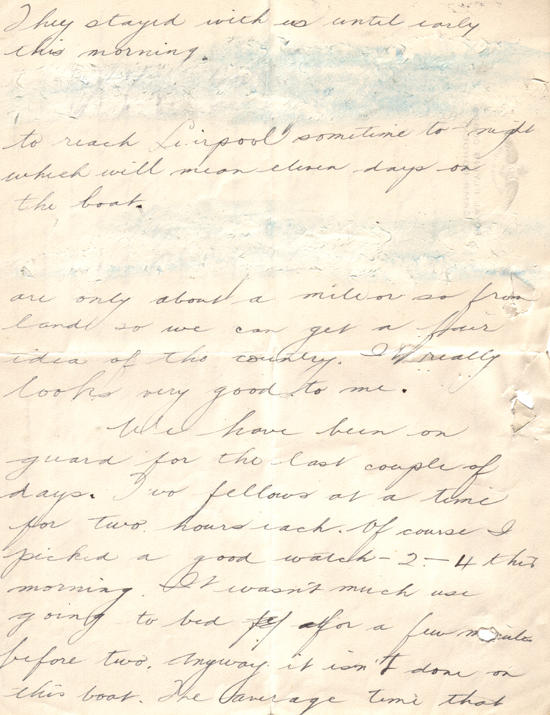 They stayed with us until early
this morning.
to reach Liirpool sometime to-night
which will mean eleven days on
the boat.
are only about a mile or so from
land so we can get a fair
idea of the country. It really
looks very good to me.
We have been on
guard for the last couple of
days. Two fellows at a time
for two hours each. Of course I
picked a good watch - 2 - 4 this
morning. It wasn't much use
going to bed for a few
before two. Anyway it isn't done on
this boat. The average time that